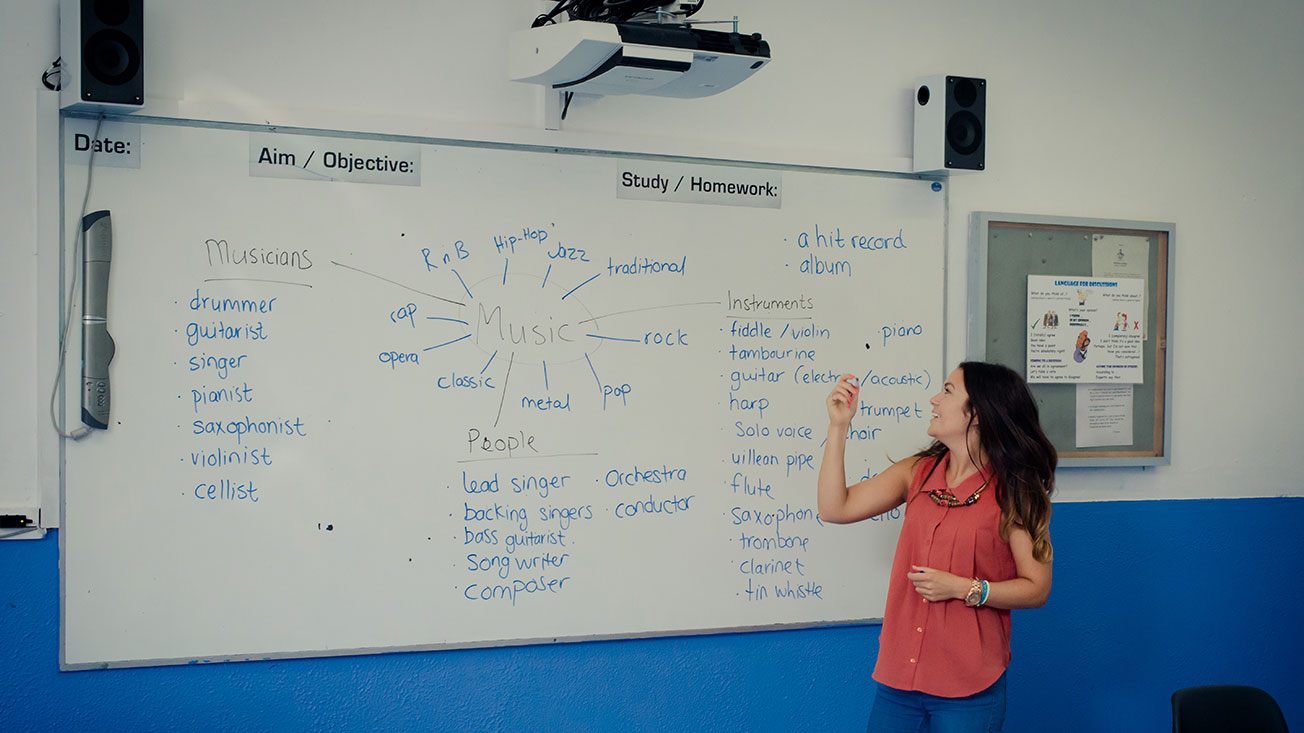 Date:
Aim / Objective:
Study / Homework:
Musicians
· drummer
· guitarist
· singer
· pianist
· saxophonist
· violinist
· cellist
Music
R n B
Hip-Hop
Jazz
traditional
rap
rock
opera
classic
metal
pop
People
· lead singer
· backing singers
· bass guitarist.
· Song writer
· composer
· Orchestra
· conductor
· a hit record
· album
Instruments
· fiddle / violin
· tambourine
· guitar (electric/acoustic)
· harp
· Solo voice / choir
· uillean pipe
· flute
· saxophone
· trombone
· clarinet
· tin whistle
· piano
trumpet
LANGUAGE FOR DISCUSSIONS
What do you think of..?
What do you think about..?